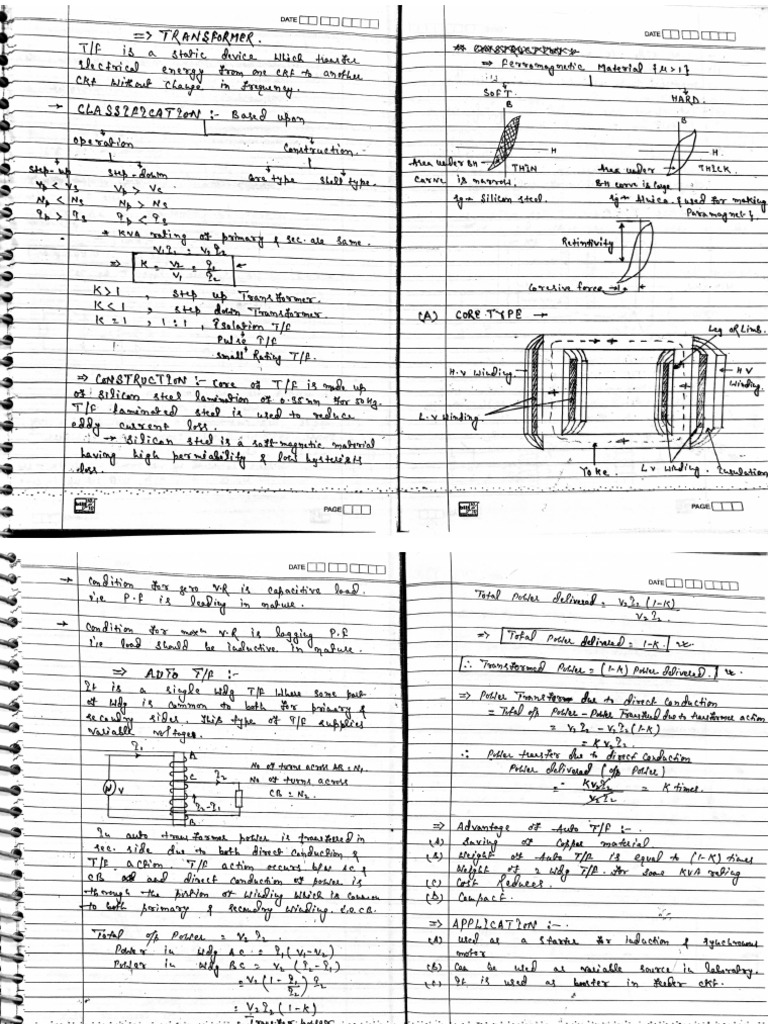 DATE
=> TRANSFORMER.
T/F is a static device which transfer
electrical energy from one CKF to another
CKF without change in frequency.
→ CLASSIFICATION :- Based upon
operation
Construction.
step-up
step-down
core type
shell type.
Vp < Vs
Vp > Vs
Np < Ns
Np > Ns
Ip > Is
Ip < Is
* KVA rating of primary & sec. are same.
V1I1 = V2I2
=> K = V2/V1 = I1/I2
K>1 , step up Transformer.
K<1 , step down Transformer.
K=1 , 1:1 , Isolation T/F
Pulse T/F
small Rating T/F.
=> CONSTRUCTION :- Core of T/F is made up
of silicon steel lamination of 0.35 mm for 50Hz.
T/F laminated steel is used to reduce
eddy current loss.
→ silicon steel is a soft magnetic material
having high permiability & low hysterisis
loss.
PAGE
DATE
** CONSTRUCTION *
=> Ferromagnetic Material {μ>1}
SOFT.
HARD.
B
B
H
H.
Area under BH
THIN
curve is narrow.
Area under
THICK.
BH curve is large
eg → Silicon steel.
eg → Alnico {used for making
Paramagnet}.
Retintivity
Coresive force
(A) CORE TYPE →
Leg or Limb.
H.V Winding.
H V
Winding.
L.V Winding.
Yoke.
L V Winding.
Insulation
PAGE
DATE
→ Condition for zero V.R is capacitive load.
i.e P.F is leading in nature.
→ Condition for maxm V.R is lagging P.F
i.e load should be inductive in nature.
=> AUTO T/F :-
It is a single wdg T/F where some part
of wdg is common to both for primary &
secondary sides. This type of T/F supplies
variable voltages.
A
C
B
V
I2
I2-I1
No of turns across AB = N1.
No of turns across
CB = N2.
In auto transformer power is transfered in
sec. side due to both direct conduction &
T/F action. T/F action occurs b/w AC &
CB and direct conduction of power is
through the portion of winding which is common
to both primary & secondary winding. i.e CB.
Total o/p Power = V2I2
Power in wdg AC = I1(V1-V2)
Power in wdg BC = V2(I2-I1)
= V2(1-I1/I2)I2
= V2I2(1-K)
DATE
Total Power delivered = V2I2(1-K)
V2I2.
=> Total Power delivered = 1-K.
∴ Transformed Power = (1-K) Power delivered.
=> Power Transform due to direct conduction
= Total o/p Power - Power Transfered due to transformer action
= V2I2 - V2I2(1-K)
= K V2I2.
∴ Power transfer due to direct conduction
Power delivered (o/p Power)
= KV2I2/V2I2 = K times.
=> Advantage of Auto T/F :-
(A) Saving of Copper material
(B) Weight of Auto T/F is equal to (1-K) times
Weight of 2 wdg T/F. For same KVA rating
(C) Cost Reduces.
(D) Compact.
=> APPLICATION :-
(A) used as a starter for induction & synchronous
motor
(B) Can be used as variable source in laboratry.
(C) It is used as booster in feeder CKF.